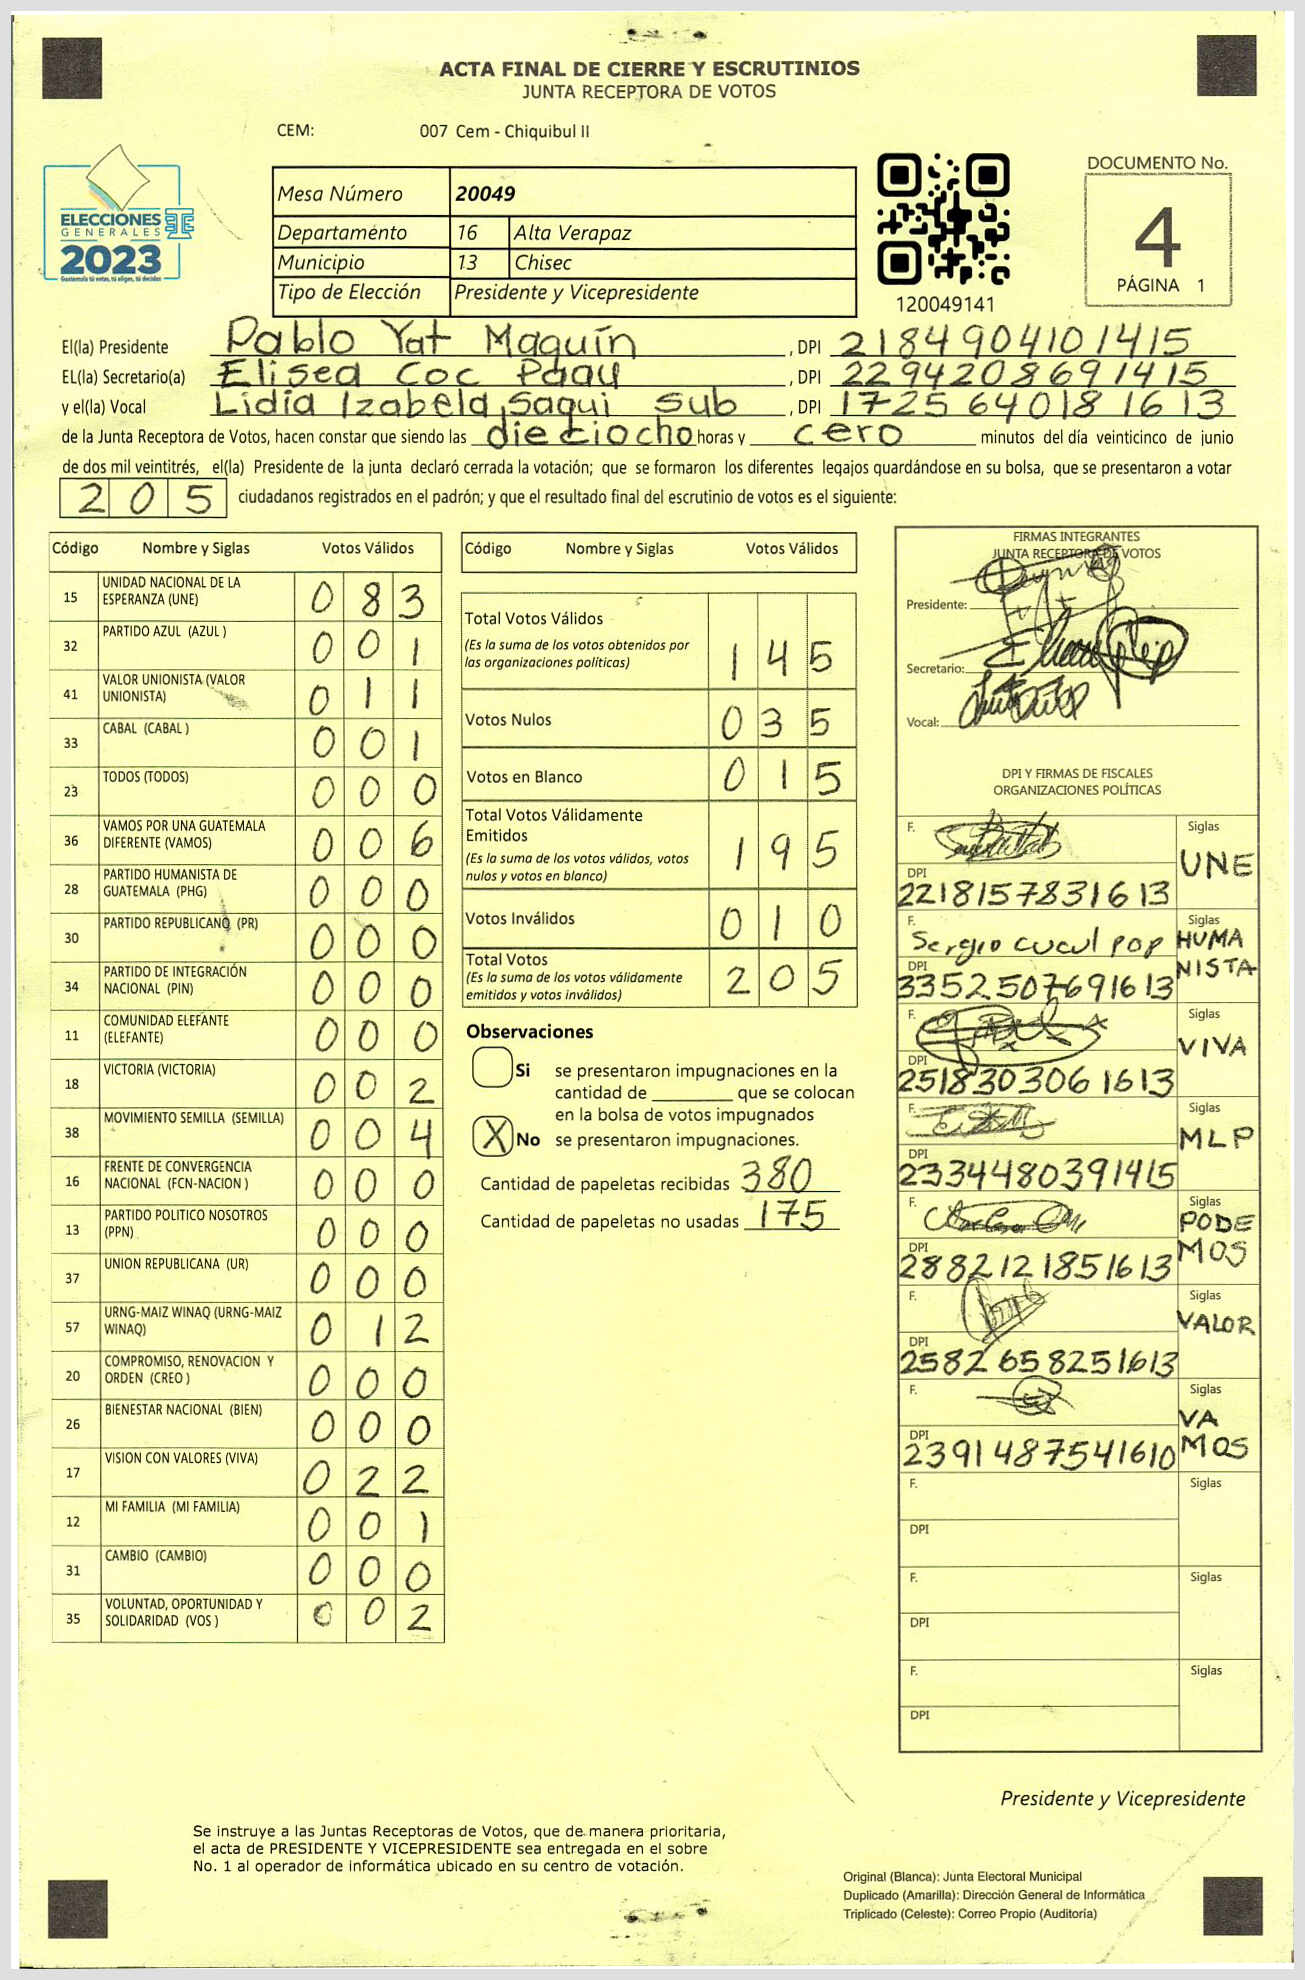 ACTA FINAL DE CIERRE Y ESCRUTINIOS
JUNTA RECEPTORA DE VOTOS
CEM: 007 Cem - Chiquibul II
ELECCIONES
GENERALES
2023
Guatemala tú votas, tú eliges, tú decides
Mesa Número 20049
Departamento 16 Alta Verapaz
Municipio 13 Chisec
Tipo de Elección Presidente y Vicepresidente
120049141
DOCUMENTO No.
4
PÁGINA 1
El(la) Presidente Pablo Yat Maquín , DPI 2184904101415
EL(la) Secretario(a) Elisea Coc Paau , DPI 2294208691415
y el(la) Vocal Lidia Izabela Saqui Sub , DPI 1725640181613
de la Junta Receptora de Votos, hacen constar que siendo las dieciocho horas y cero minutos del día veinticinco de junio
de dos mil veintitrés, el(la) Presidente de la junta declaró cerrada la votación; que se formaron los diferentes legajos quardándose en su bolsa, que se presentaron a votar
205 ciudadanos registrados en el padrón; y que el resultado final del escrutinio de votos es el siguiente:
Código Nombre y Siglas Votos Válidos
15 UNIDAD NACIONAL DE LA ESPERANZA (UNE) 083
32 PARTIDO AZUL (AZUL ) 001
41 VALOR UNIONISTA (VALOR UNIONISTA) 011
33 CABAL (CABAL ) 001
23 TODOS (TODOS) 000
36 VAMOS POR UNA GUATEMALA DIFERENTE (VAMOS) 006
28 PARTIDO HUMANISTA DE GUATEMALA (PHG) 000
30 PARTIDO REPUBLICANO (PR) 000
34 PARTIDO DE INTEGRACIÓN NACIONAL (PIN) 000
11 COMUNIDAD ELEFANTE (ELEFANTE) 000
18 VICTORIA (VICTORIA) 002
38 MOVIMIENTO SEMILLA (SEMILLA) 004
16 FRENTE DE CONVERGENCIA NACIONAL (FCN-NACION ) 000
13 PARTIDO POLITICO NOSOTROS (PPN) 000
37 UNION REPUBLICANA (UR) 000
57 URNG-MAIZ WINAQ (URNG-MAIZ WINAQ) 012
20 COMPROMISO, RENOVACION Y ORDEN (CREO ) 000
26 BIENESTAR NACIONAL (BIEN) 000
17 VISION CON VALORES (VIVA) 022
12 MI FAMILIA (MI FAMILIA) 001
31 CAMBIO (CAMBIO) 000
35 VOLUNTAD, OPORTUNIDAD Y SOLIDARIDAD (VOS ) 002
Código Nombre y Siglas Votos Válidos
Total Votos Válidos
(Es la suma de los votos obtenidos por
las organizaciones políticas) 145
Votos Nulos 035
Votos en Blanco 015
Total Votos Válidamente
Emitidos
(Es la suma de los votos válidos, votos
nulos y votos en blanco) 195
Votos Inválidos 010
Total Votos
(Es la suma de los votos válidamente
emitidos y votos inválidos) 205
Observaciones
Si se presentaron impugnaciones en la
cantidad de ________ que se colocan
en la bolsa de votos impugnados
X No se presentaron impugnaciones.
Cantidad de papeletas recibidas 380
Cantidad de papeletas no usadas 175
FIRMAS INTEGRANTES
JUNTA RECEPTORA DE VOTOS
Presidente:
Secretario:
Vocal:
DPI Y FIRMAS DE FISCALES
ORGANIZACIONES POLÍTICAS
F. Siglas UNE
DPI 2218157831613
F. Sergio Cucul Pop Siglas HUMA NISTA
DPI 3352507691613
F. Siglas VIVA
DPI 2518303061613
F. Siglas MLP
DPI 2334480391415
F. Siglas PODE MOS
DPI 2882121851613
F. Siglas VALOR
DPI 2582658251613
F. Siglas VA MOS
DPI 2391487541610
F. Siglas
DPI
F. Siglas
DPI
F. Siglas
DPI
Presidente y Vicepresidente
Se instruye a las Juntas Receptoras de Votos, que de manera prioritaria,
el acta de PRESIDENTE Y VICEPRESIDENTE sea entregada en el sobre
No. 1 al operador de informática ubicado en su centro de votación.
Original (Blanca): Junta Electoral Municipal
Duplicado (Amarilla): Dirección General de Informática
Triplicado (Celeste): Correo Propio (Auditoria)